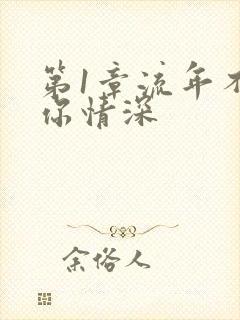 第1章流年不
你情深
余俗人